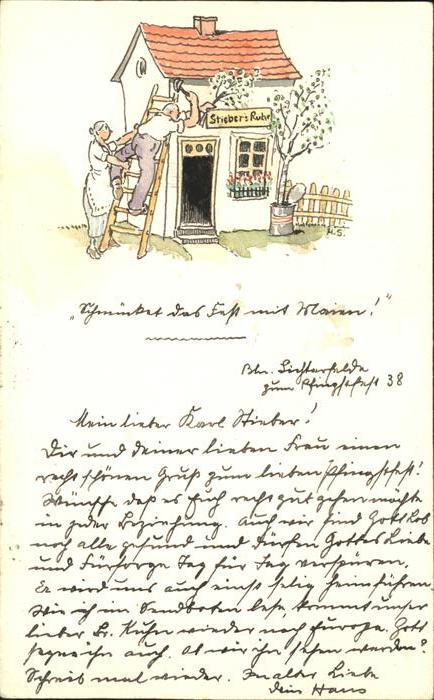 Stieber's Ruhe
H.S.
„Schmücket das Fest mit Maien!"
Bln. Lichterfelde
zum Pfingstfest 38
Mein lieber Karl Stieber!
Dir und deiner lieben Frau einen
recht schönen Gruß zum lieben Pfingstfest!
Wünsche daß es Euch recht gut gehen möchte
in jeder Beziehung. Auch wir sind Gott Lob
noch alle gesund und dürfen Gottes Liebe
und Fürsorge Tag für Tag verspüren.
Er wird uns auch einst selig heimführen.
Wie ich im Sendboten lese, kommt unser
lieber Br. Kuhn wieder nach Europa. Gott
segne ihn auch. Ob wir ihn sehen werden?
Schreib mal wieder. In alter Liebe
dein Hans